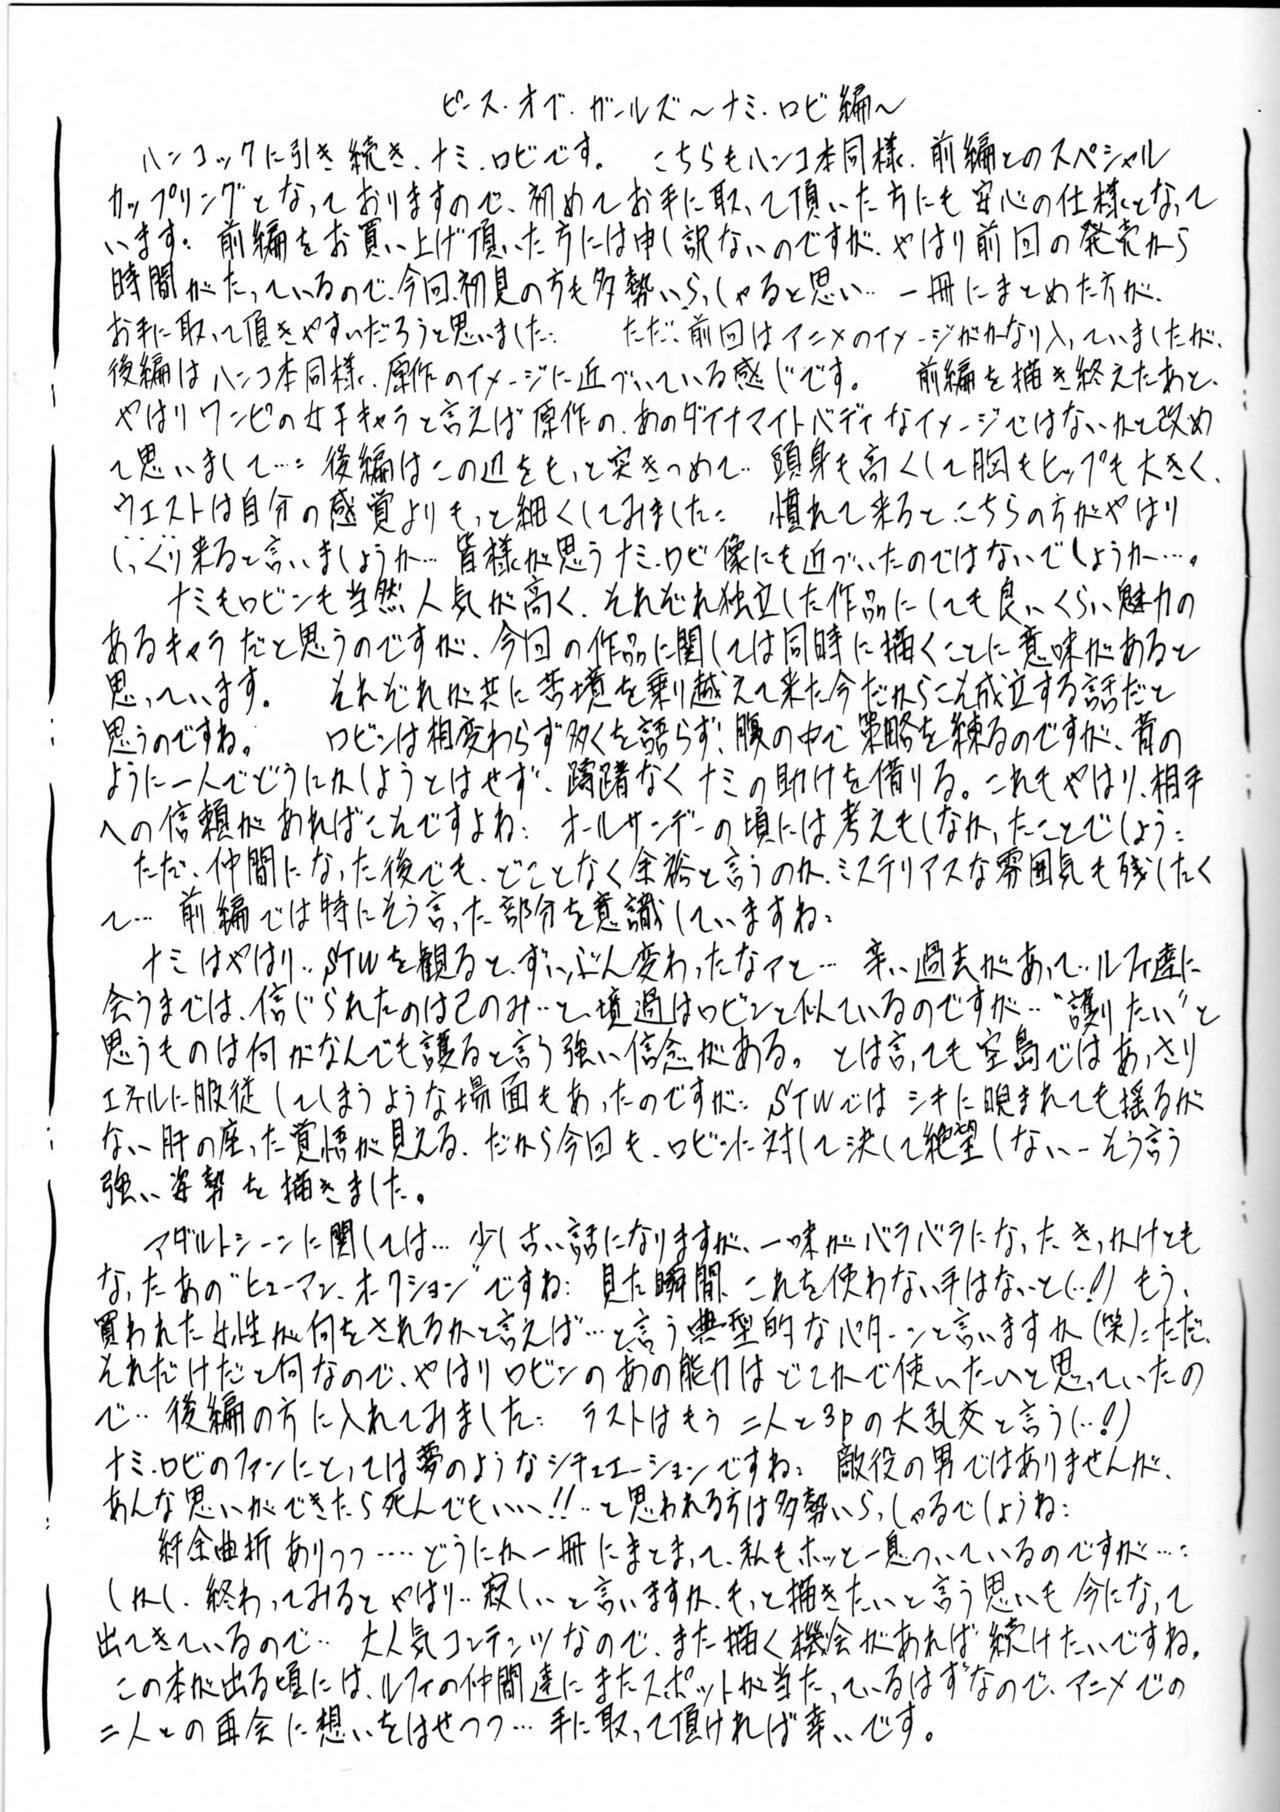 ピース・オブ・ガールズ～ナミ・ロビ編～
ハンコックに引き続き、ナミ・ロビです。 こちらもハンコ本同様、前編とのスペシャル
カップリングとなっておりますので、初めてお手に取って頂いた方にも安心の仕様となって
います。前編をお買い上げ頂いた方には申し訳ないのですが、やはり前回の発売から
時間がたっているので、今回、初見の方も多勢いらっしゃると思い‥一冊にまとめた方が、
お手に取って頂きやすいだろうと思いました… ただ、前回はアニメのイメージがかなり入っていましたが、
後編はハンコ本同様、原作のイメージに近づいている感じです。 前編を描き終えたあと、
やはりワンピの女子キャラと言えば原作の、あのダイナマイトバディなイメージではないかと改め
て思いまして…後編はこの辺をもっと突きつめて‥頭身も高くして胸もヒップも大きく、
ウエストは自分の感覚よりもっと細くしてみました… 慣れて来ると、こちらの方がやはり
しっくり来ると言いましょうか…皆様が思うナミ・ロビ像にも近づいたのではないでしょうか…。
ナミもロビンも当然人気が高く、それぞれ独立した作品にしても良いくらい魅力の
あるキャラだと思うのですが、今回の作品に関しては同時に描くことに意味があると
思っています。 それぞれが共に苦境を乗り越えて来た今だからこそ成立する話だと
思うのですね。 ロビンは相変わらず多くを語らず、腹の中で策略を練るのですが、昔の
ように一人でどうにかしようとはせず、躊躇なくナミの助けを借りる。これもやはり、相手
への信頼があればこそですよね… オールサンデーの頃には考えもしなかったことでしょう…
ただ、仲間になった後でも、どことなく余裕と言うのか、ミステリアスな雰囲気も残したく
て…前編では特にそう言った部分を意識していますね…
ナミはやはり‥STWを観ると、ずいぶん変わったなァと… 辛い過去があって‥ルフィ達に
会うまでは、信じられたのは己のみ‥と、境遇はロビンと似ているのですが‥“護りたい”と
思うものは何がなんでも護ると言う強い信念がある。とは言っても空島ではあっさり
エネルに服従してしまうような場面もあったのですが… STWではシキに睨まれても揺るが
ない肝の座った覚悟が見える、だから今回も、ロビンに対して決して絶望しない－そう言う
強い姿勢を描きました。
アダルトシーンに関しては…少し古い話になりますが、一味がバラバラになったきっかけとも
なったあの“ヒューマン・オークション”ですね… 見た瞬間、これを使わない手はないと(‥!) もう、
買われた女性が何をされるかと言えば…と言う典型的なパターンと言いますか(笑)…ただ、
それだけだと何なので、やはりロビンのあの能力はどこかで使いたいと思っていたの
で‥後編の方に入れてみました… ラストはもう二人と3Pの大乱交と言う(‥!)
ナミ・ロビのファンにとっては夢のようなシチュエーションですね… 敵役の男ではありませんが、
あんな思いができたら死んでもいい!!‥と思われる方は多勢いらっしゃるでしょうね…
紆余曲折ありつつ‥‥どうにか一冊にまとまって、私もホッと一息ついているのですが…
しかし、終わってみるとやはり‥寂しいと言いますか、もっと描きたいと言う思いも今になって
出てきているので‥ 大人気コンテンツなので、また描く機会があれば続けたいですね。
この本が出る頃には、ルフィの仲間達にまたスポットが当たっているはずなので、アニメでの
二人との再会に想いをはせつつ…手に取って頂ければ幸いです。